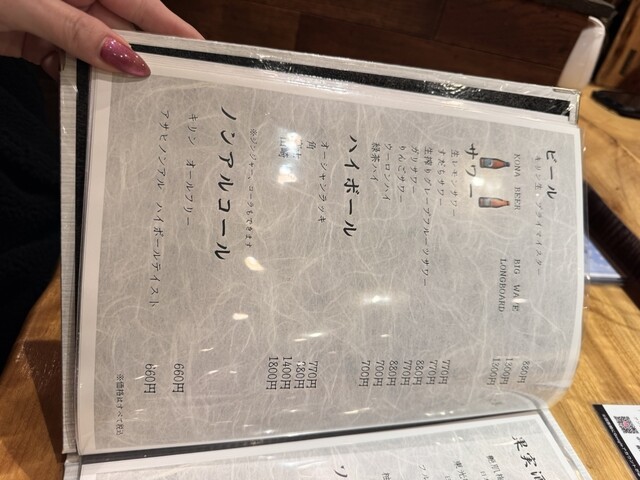 ビール
キリン生 ブラウマイスター 880円
KONA BEER BIG WAVE 1300円
LONGBOARD 1300円
サワー
生レモンサワー 770円
すだちサワー 770円
生搾りグレープフルーツサワー 880円
ガリサワー 770円
りんごサワー 880円
ウーロンハイ 700円
緑茶ハイ 700円
ハイボール
オーシャンラッキー 770円
角
山崎 1800円
1400円
※ジンジャー、コーラもできます
ノンアルコール
キリン オールフリー 660円
アサヒノンアル ハイボールテイスト 660円
※価格はすべて税込
果実酒